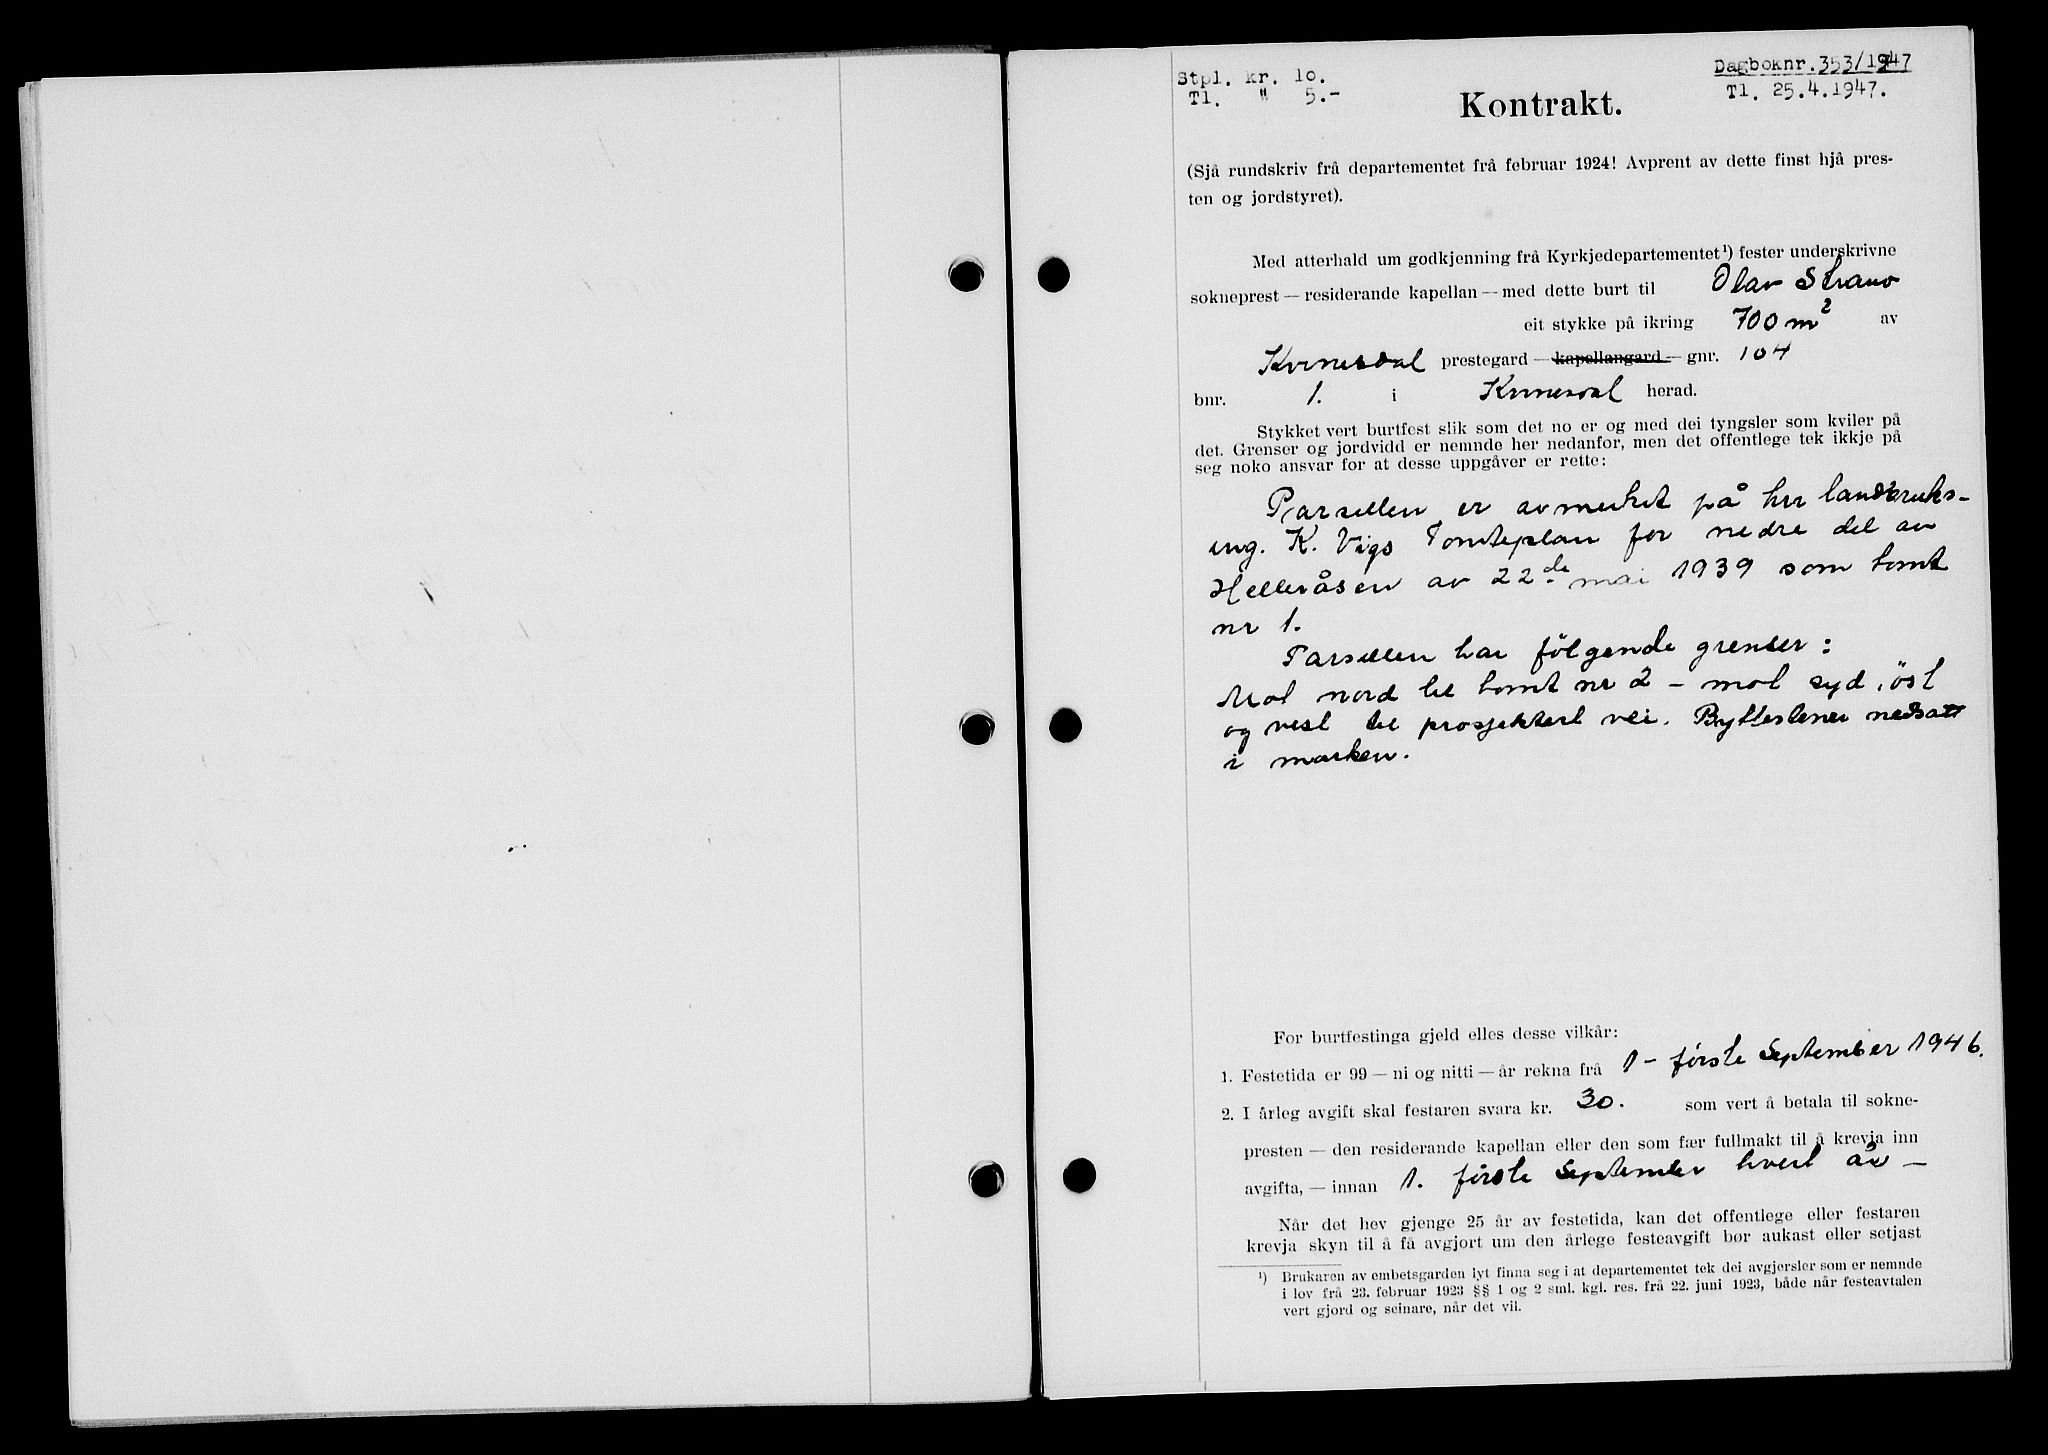 Stpl. kr. 10.
Tl. " 5.-
Dagboknr. 353/1947
Tl. 25.4.1947.
Kontrakt.
(Sjå rundskriv frå departementet frå februar 1924! Avprent av dette finst hjå pres-
ten og jordstyret).
Med atterhald um godkjenning frå Kyrkjedepartementet¹) fester underskrivne
sokneprest — residerande kapellan — med dette burt til Olav
eit stykke på ikring 700 m² av
Kvinesdal prestegard — kapellangard — gnr. 104
bnr. 1. i Kvinesdal herad.
Stykket vert burtfest slik som det no er og med dei tyngsler som kviler på
det. Grenser og jordvidd er nemnde her nedanfor, men det offentlege tek ikkje på
seg noko ansvar for at desse uppgåver er rette:
Parsellen er avmerket på hr landbruks-
ing. K. Vigs Tomteplan for nedre del av
Helleråsen av 22de mai 1939 som tomt
nr 1.
Parsellen har følgende grenser:
Mot nord til tomt nr 2 - mot syd, öst
og vest til prosjektert vei. Byttestener nedsatt
i marken.
For burtfestinga gjeld elles desse vilkår:
1. Festetida er 99 — ni og nitti — år rekna frå 1 - første September 1946.
2. I årleg avgift skal festaren svara kr. 30. som vert å betala til sokne-
presten — den residerande kapellan eller den som fær fullmakt til å krevja inn
avgifta, — innan 1. første September hvert år —
Når det hev gjenge 25 år av festetida, kan det offentlege eller festaren
krevja skyn til å få avgjort um den årlege festeavgift bør aukast eller setjast
¹) Brukaren av embetsgarden lyt finna seg i at departementet tek dei avgjersler som er nemnde
i lov frå 23. februar 1923 §§ 1 og 2 sml. kgl. res. frå 22. juni 1923, både når festeavtalen
vert gjord og seinare, når det vil.